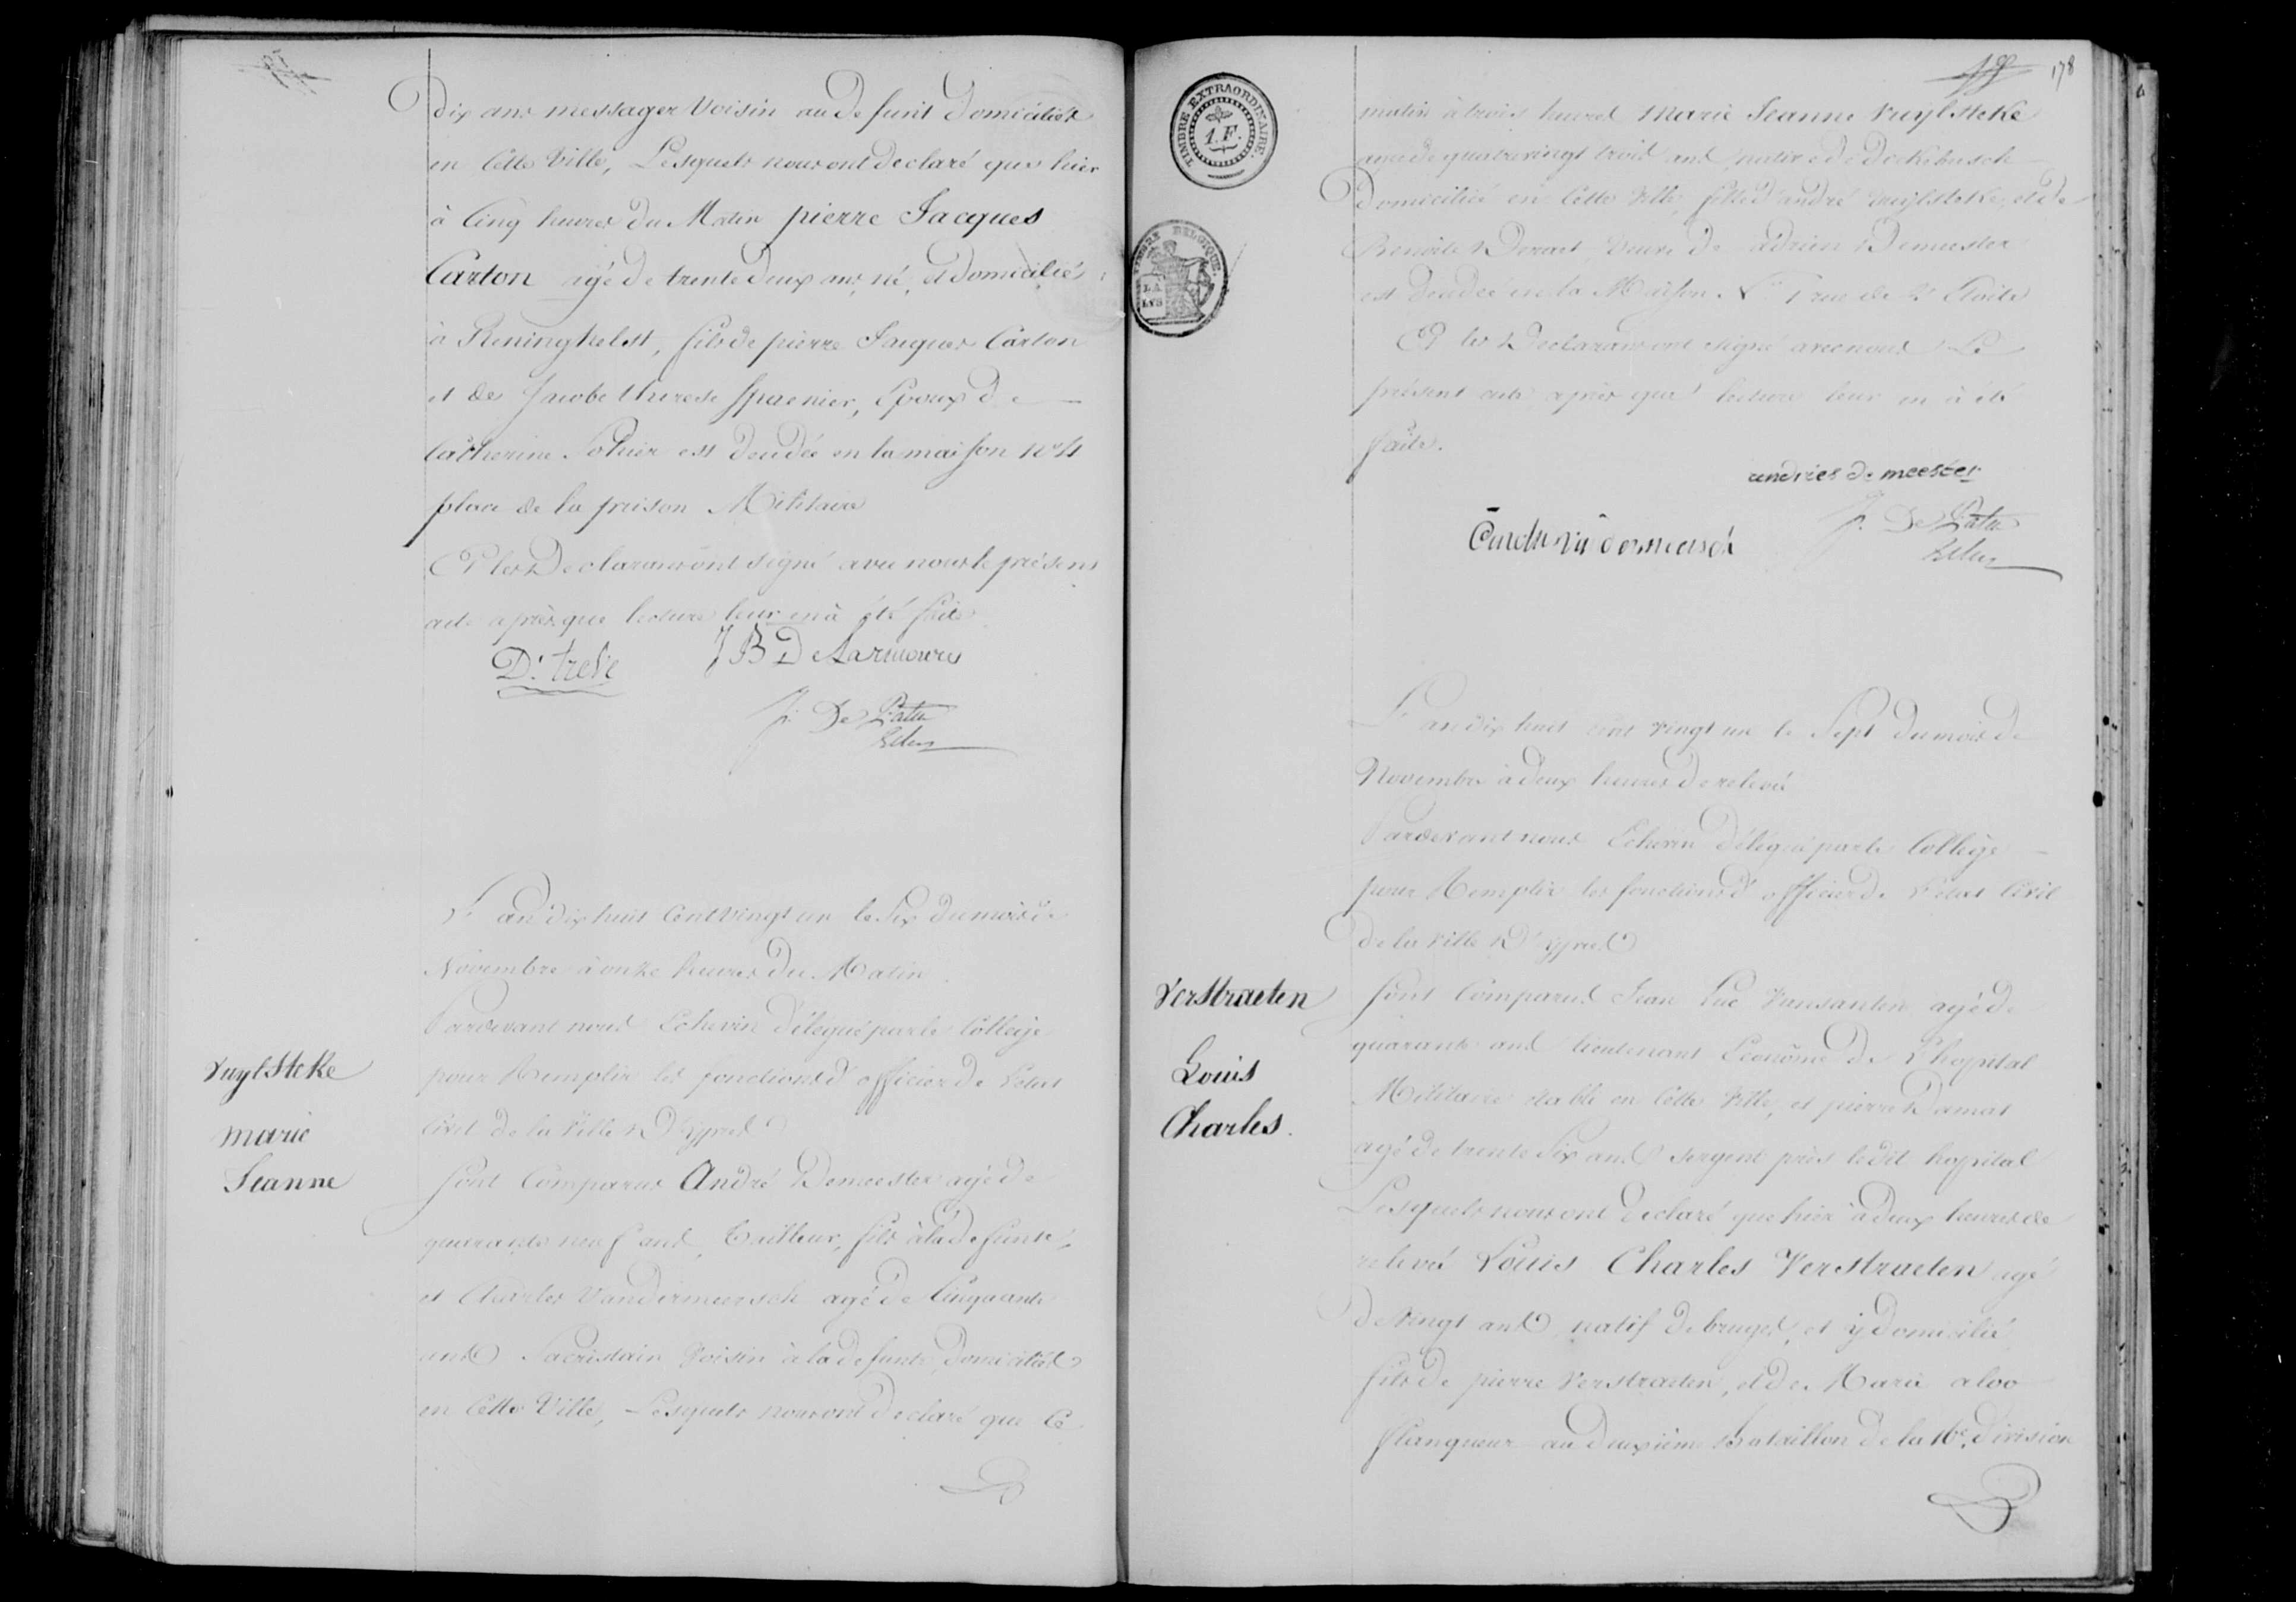 Dix ans messager voisin au defunt Domiciliés
en Cette Ville, Lesquels nous ont declaré que hier
à Cinq heures du Matin pierre Jacques
Carton agé de trente deux ans, né, et domicilié
à Reninghelst, fils de pierre Jacques Carton
et de Jacobe therese Spaenier, Epoux de
Catherine Sohier est decedée en la maison No 4
place de la prison Militaire
Et les Declarans ont signé avec nous le présent
acte après que lecture leur en à été faite
D. treve J B D
J. De Patin
Vuylsteke
marie
Jeanne
L'an dix huit Cent vingt un le Six du mois de
Novembre à onze heures du Matin
Pardevant nous Echevin délégué par le College
pour Remplir les fonctions d'officier de l'etat
Civil de la Ville D'ypres
Sont Comparus André Demeester agé de
quarante neuf ans, Tailleur, fils à la defunte,
et Charles Vandermeersch agé de Cinquante
ans Sacristain Voisin à la defunte, domiciliés
en Cette Ville, Lesquels nous ont declaré que Ce
178
TIMBRE EXTRAORDINAIRE.
1.F.
TIMBRE BELGIQUE.
LA
LYS
matin à trois heures Marie Jeanne Vuylsteke
agée de quatrevingt trois ans, native de Dickebusch
Domiciliée en Cette Ville, fille d'andré Vuylsteke, et de
Benoite Veuve de adrien Demeester
est decedée en la Maison No 1 rue de l'Etoile
Et les Declarans ont signé avec nous Le
présent acte, après que lecture leur en à été
faite.
andries de meester
J. De Patin
L'an dix huit cent vingt un le Sept du mois de
Novembre à deux heures de relevé
Pardevant nous Echevin délégué par le College
pour Remplir les fonctions d'officier de l'etat Civil
de la Ville D'ypres
Verstraeten
Louis
Charles.
Sont Comparus Jean Luc Vansanten agé de
quarante ans lieutenant Econôme de l'hopital
Militaire etabli en Cette Ville, et pierre Damas
agé de trente Six ans Sergent près ledit hopital
Lesquels nous ont declaré que hier à deux heures de
relevé Louis Charles Verstraeten agé
de Vingt ans natif de bruges, et y domicilié
fils de pierre Verstraeten, et de Marie aloo
flanqueur au deuxième Bataillon de la 16e. division